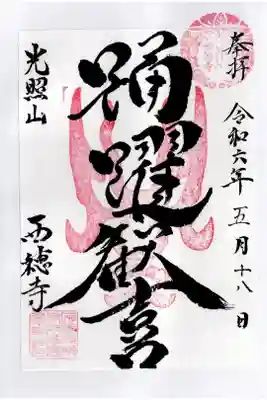 奉拝
令和六年五月十八日
踊躍歓喜
光照山
西穂寺